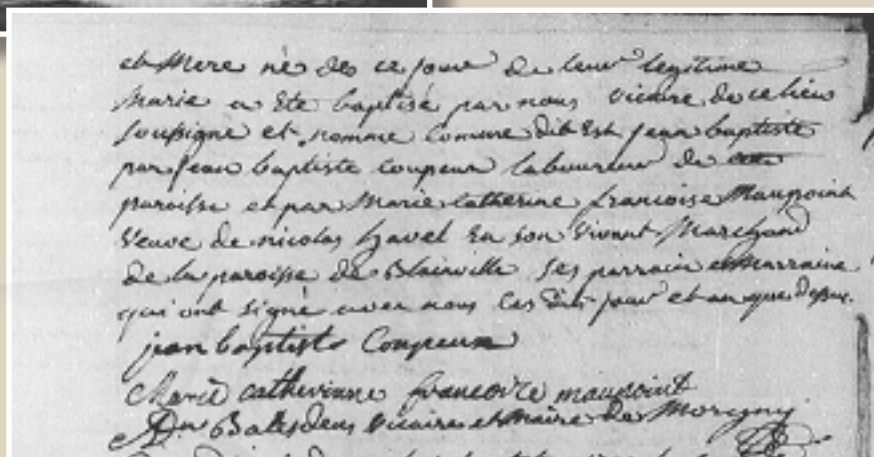 et Mere né des ce jour de leur legitime
Marie a Eté baptisé par nous vicaire de ce lieu
soussigné et nommé comme dit Est jean baptiste
par Jean baptiste coupeur laboureur de cette
paroisse et par Marie Catherine francoise Maupoint
veuve de nicolas havel En son vivant Marchand
de la paroisse de Blainville ses parrain et Marraine
qui ont signé avec nous ces dits jour et an que dessus.
jean baptiste Coupeur
Marie catherinne francoise maupoint
vicaire et Maire de Morigny